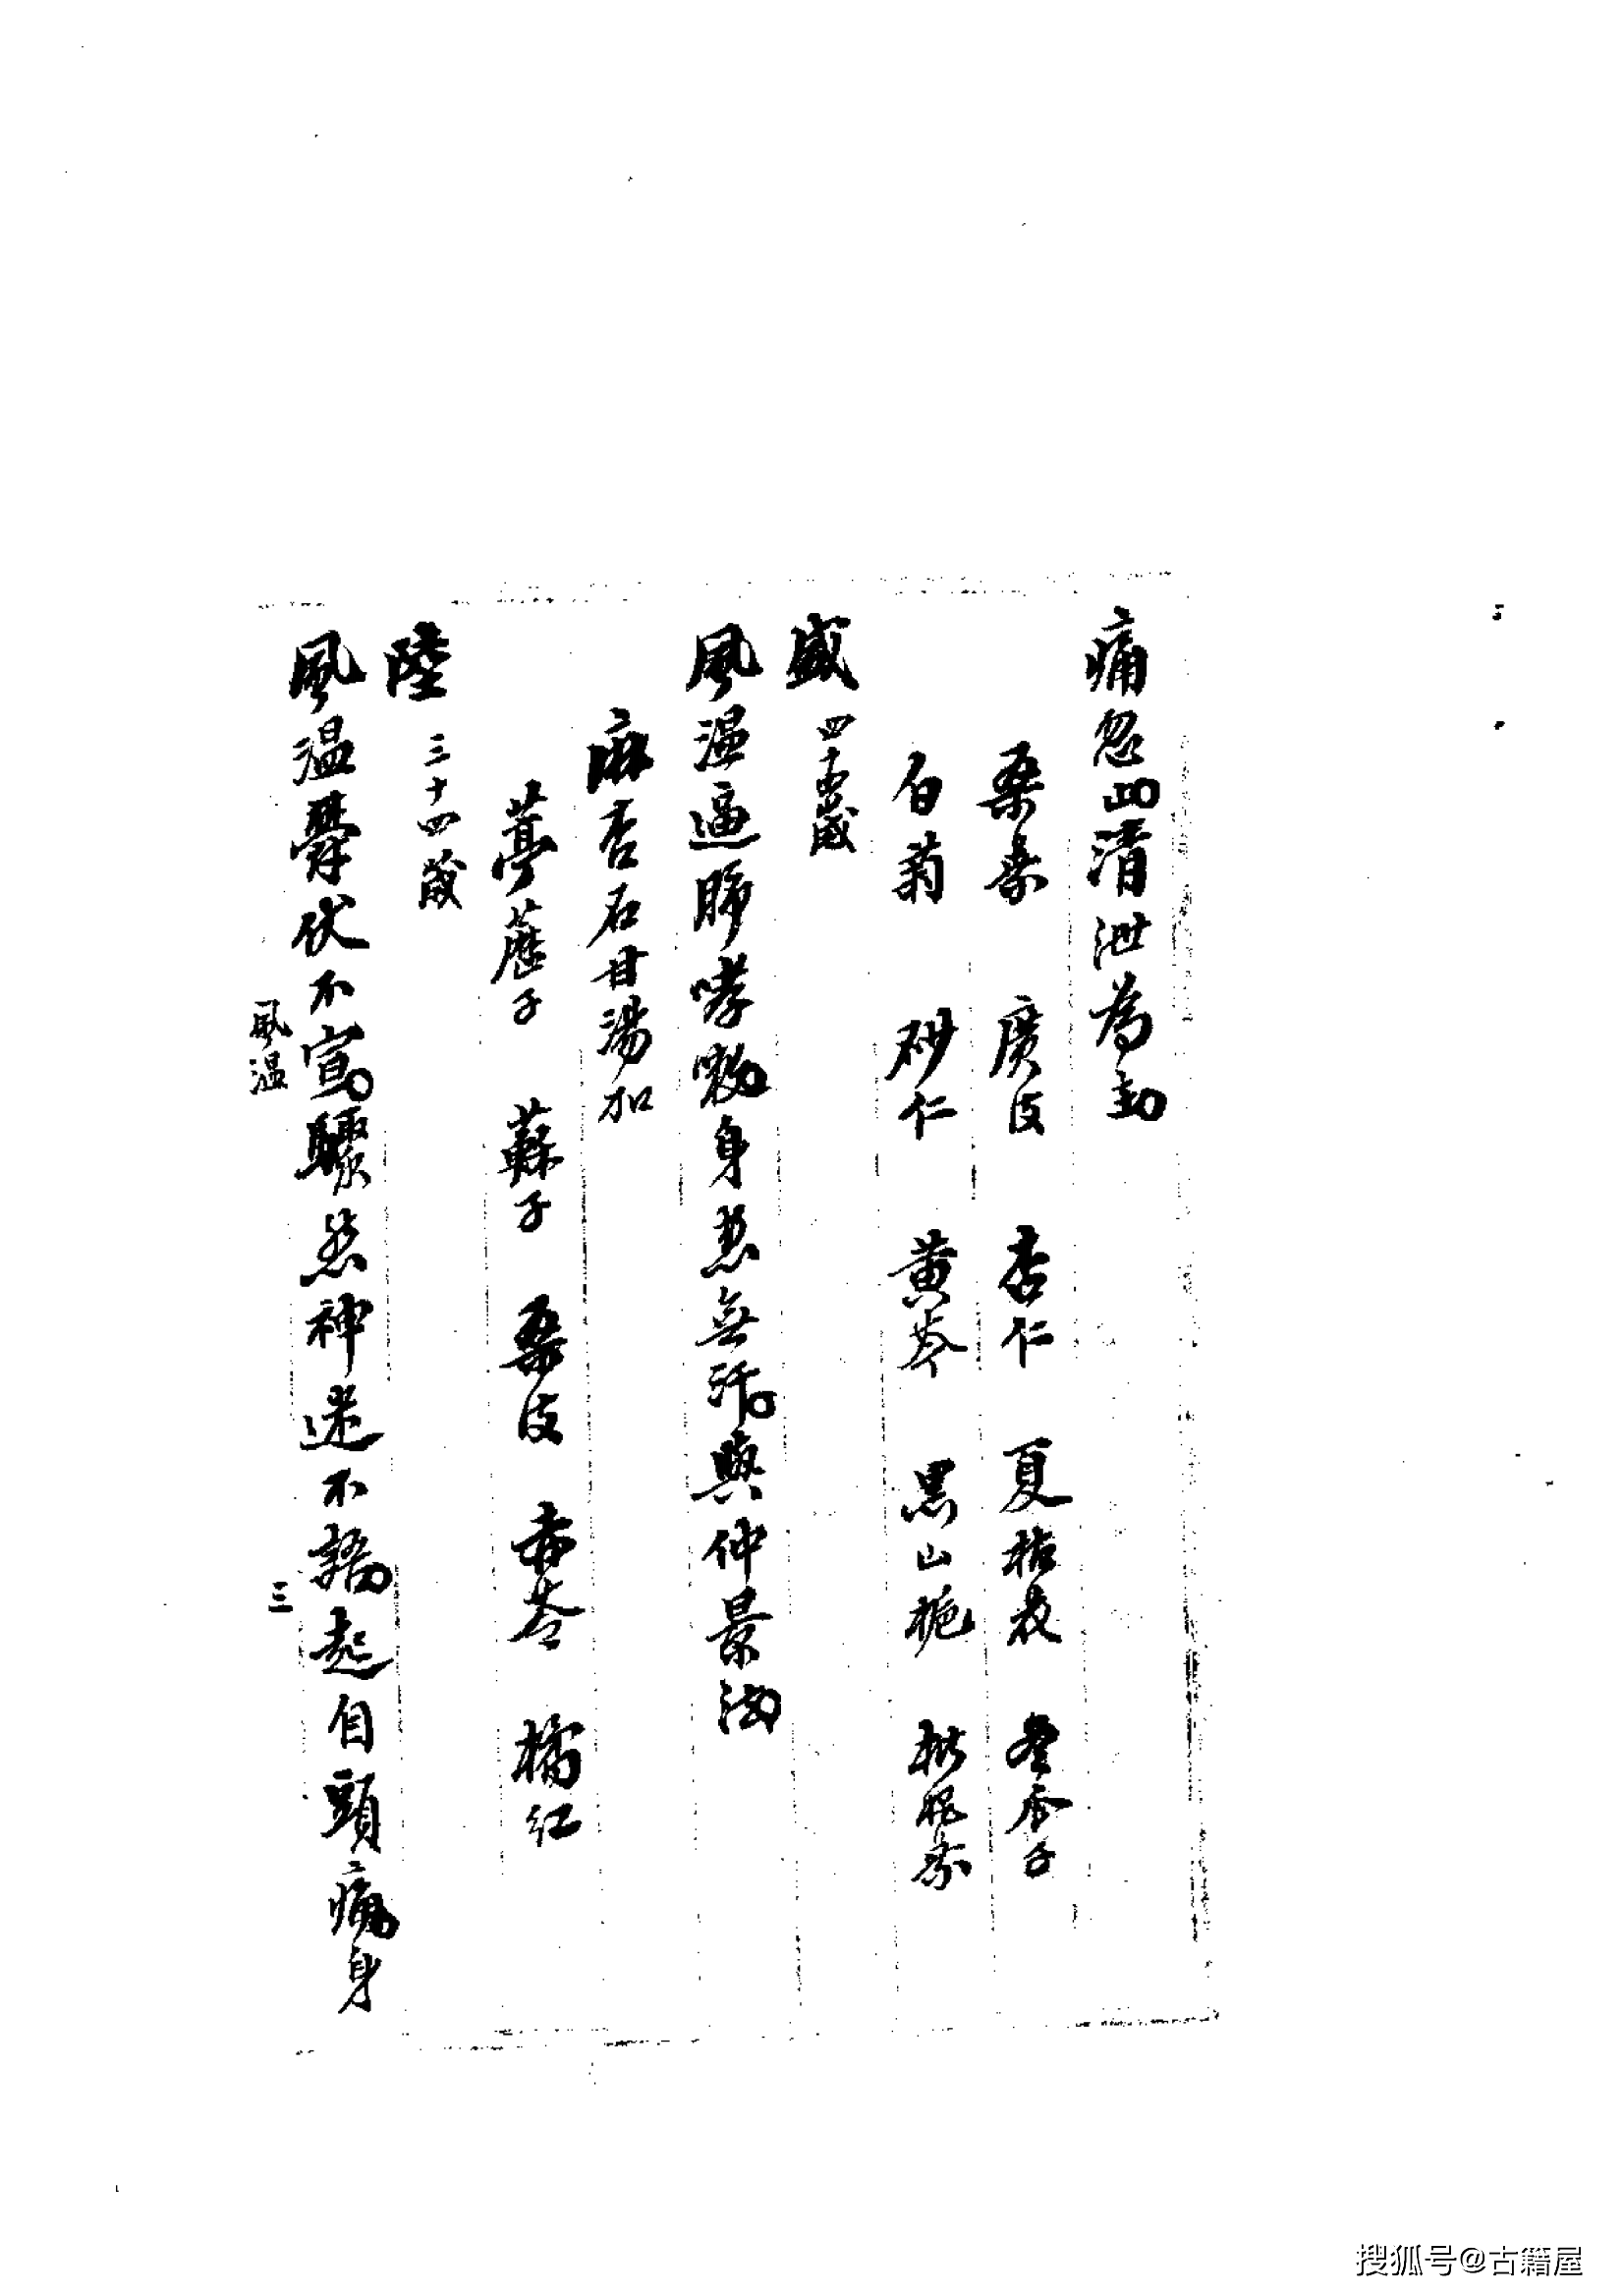 痛忽止。清泄為主。
桑葉 廣皮 杏仁 夏枯衣 冬瓜子
白菊 砂仁 黄芩 黑山梔 枇杷葉
盛 四十五歲
風温逼肺哮嗽。身熱無汗。與仲景法。
麻杏石甘湯加
葶藶子 蘇子 桑皮 赤苓 橘红
陸 三十四歲
風温欝伏不宣。驟然神迷不語。起自頭痛。身
風温
三
搜狐号@古籍屋